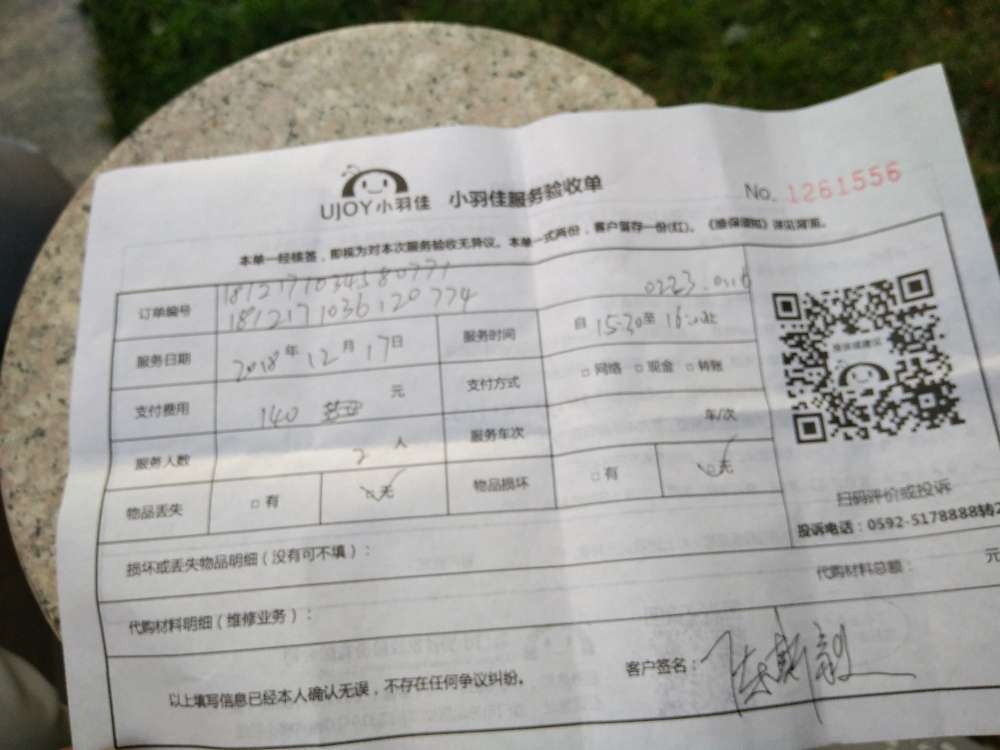 UJOY小羽佳 小羽佳服务验收单 No. 1261556
本单一经核签，即视为对本次服务验收无异议。本单一式两份，客户留存一份(红)。《维保须知》详见背面。
订单编号 1812171034580771
1812171036120774
服务日期 2018年12月17日 服务时间 自15:30至16:
支付费用 140 元 支付方式 □网络 □现金 □转账
服务人数 2人 服务车次 车/次
物品丢失 □有 ☑无 物品损坏 □有 ☑无
扫码评价或投诉
投诉电话：0592-5178888转2
损坏或丢失物品明细（没有可不填）：
代购材料明细（维修业务）： 代购材料总额： 元
以上填写信息已经本人确认无误，不存在任何争议纠纷。 客户签名：